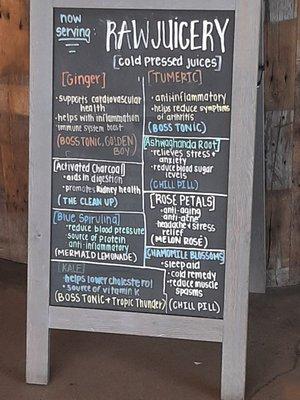 now
serving:
RAWJUICERY
[cold pressed juices]
[Ginger]
· supports cardiovascular
health
· helps with inflammation
· immune system bost
(BOSS TONIC, GOLDEN
BOY)
[TUMERIC]
· anti-inflammatory
· helps reduce symptoms
of arthritis
(BOSS TONIC)
[Activated Charcoal]
· aids in digestion
· promotes kidney health
(THE CLEAN UP)
[Ashwaghanda Root]
· relieves stress +
anxiety
· reduce blood sugar
levels
(CHILL PILL)
[Blue Spirulina]
· reduce blood pressure
· source of protein
· anti inflammatory
(MERMAID LEMONADE)
[ROSE PETALS]
· anti-aging
· anti-acne
· headache + stress
relief
(MELON ROSÉ)
[KALE]
· helps lower cholesterol
· source of vitamin K
(BOSS TONIC + Tropic Thunder)
[CHAMOMILE BLOSSOMS]
· sleep aid
· cold remedy
· reduce muscle
spasms
(CHILL PILL)